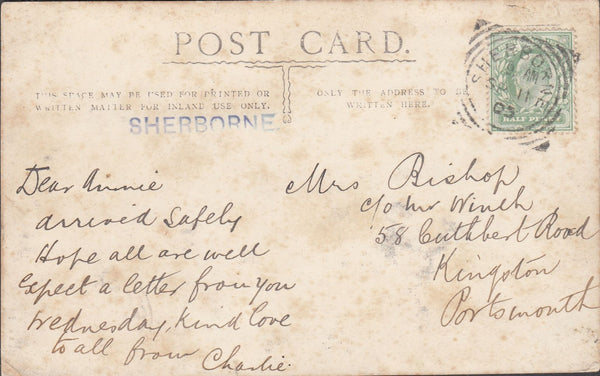 POST CARD.
THIS SPACE MAY BE USED FOR PRINTED OR
WRITTEN MATTER FOR INLAND USE ONLY.
ONLY THE ADDRESS TO BE
WRITTEN HERE.
SHERBORNE
SHERBORNE
AM
11
05
HALF PENNY
Dear Annie
arrived Safely
Hope all are well
Expect a letter from you
Wednesday, Kind love
to all from Charlie
Mrs Bishop
c/o Mr Winch
58 Cuthbert Road
Kingston
Portsmouth